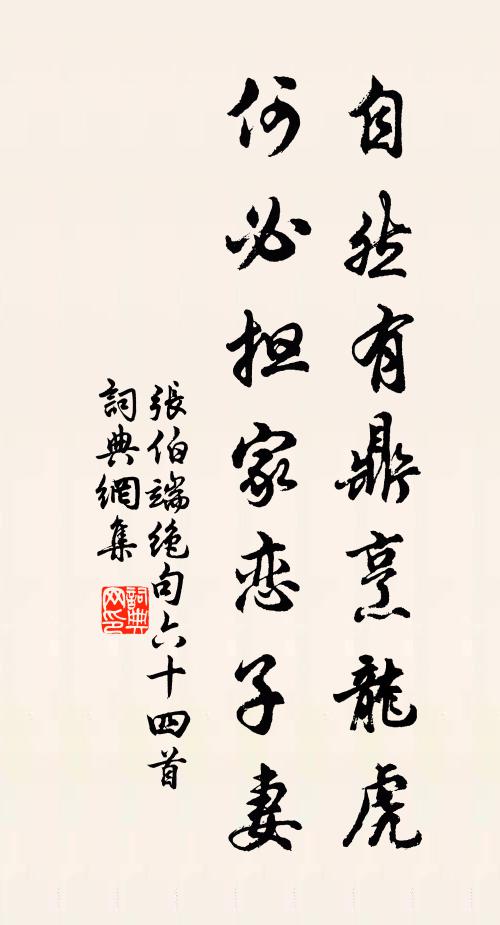 自然有鼎烹龍虎
何必担家恋子妻
張伯端絶句六十四首
詞典網集
詞典
网印